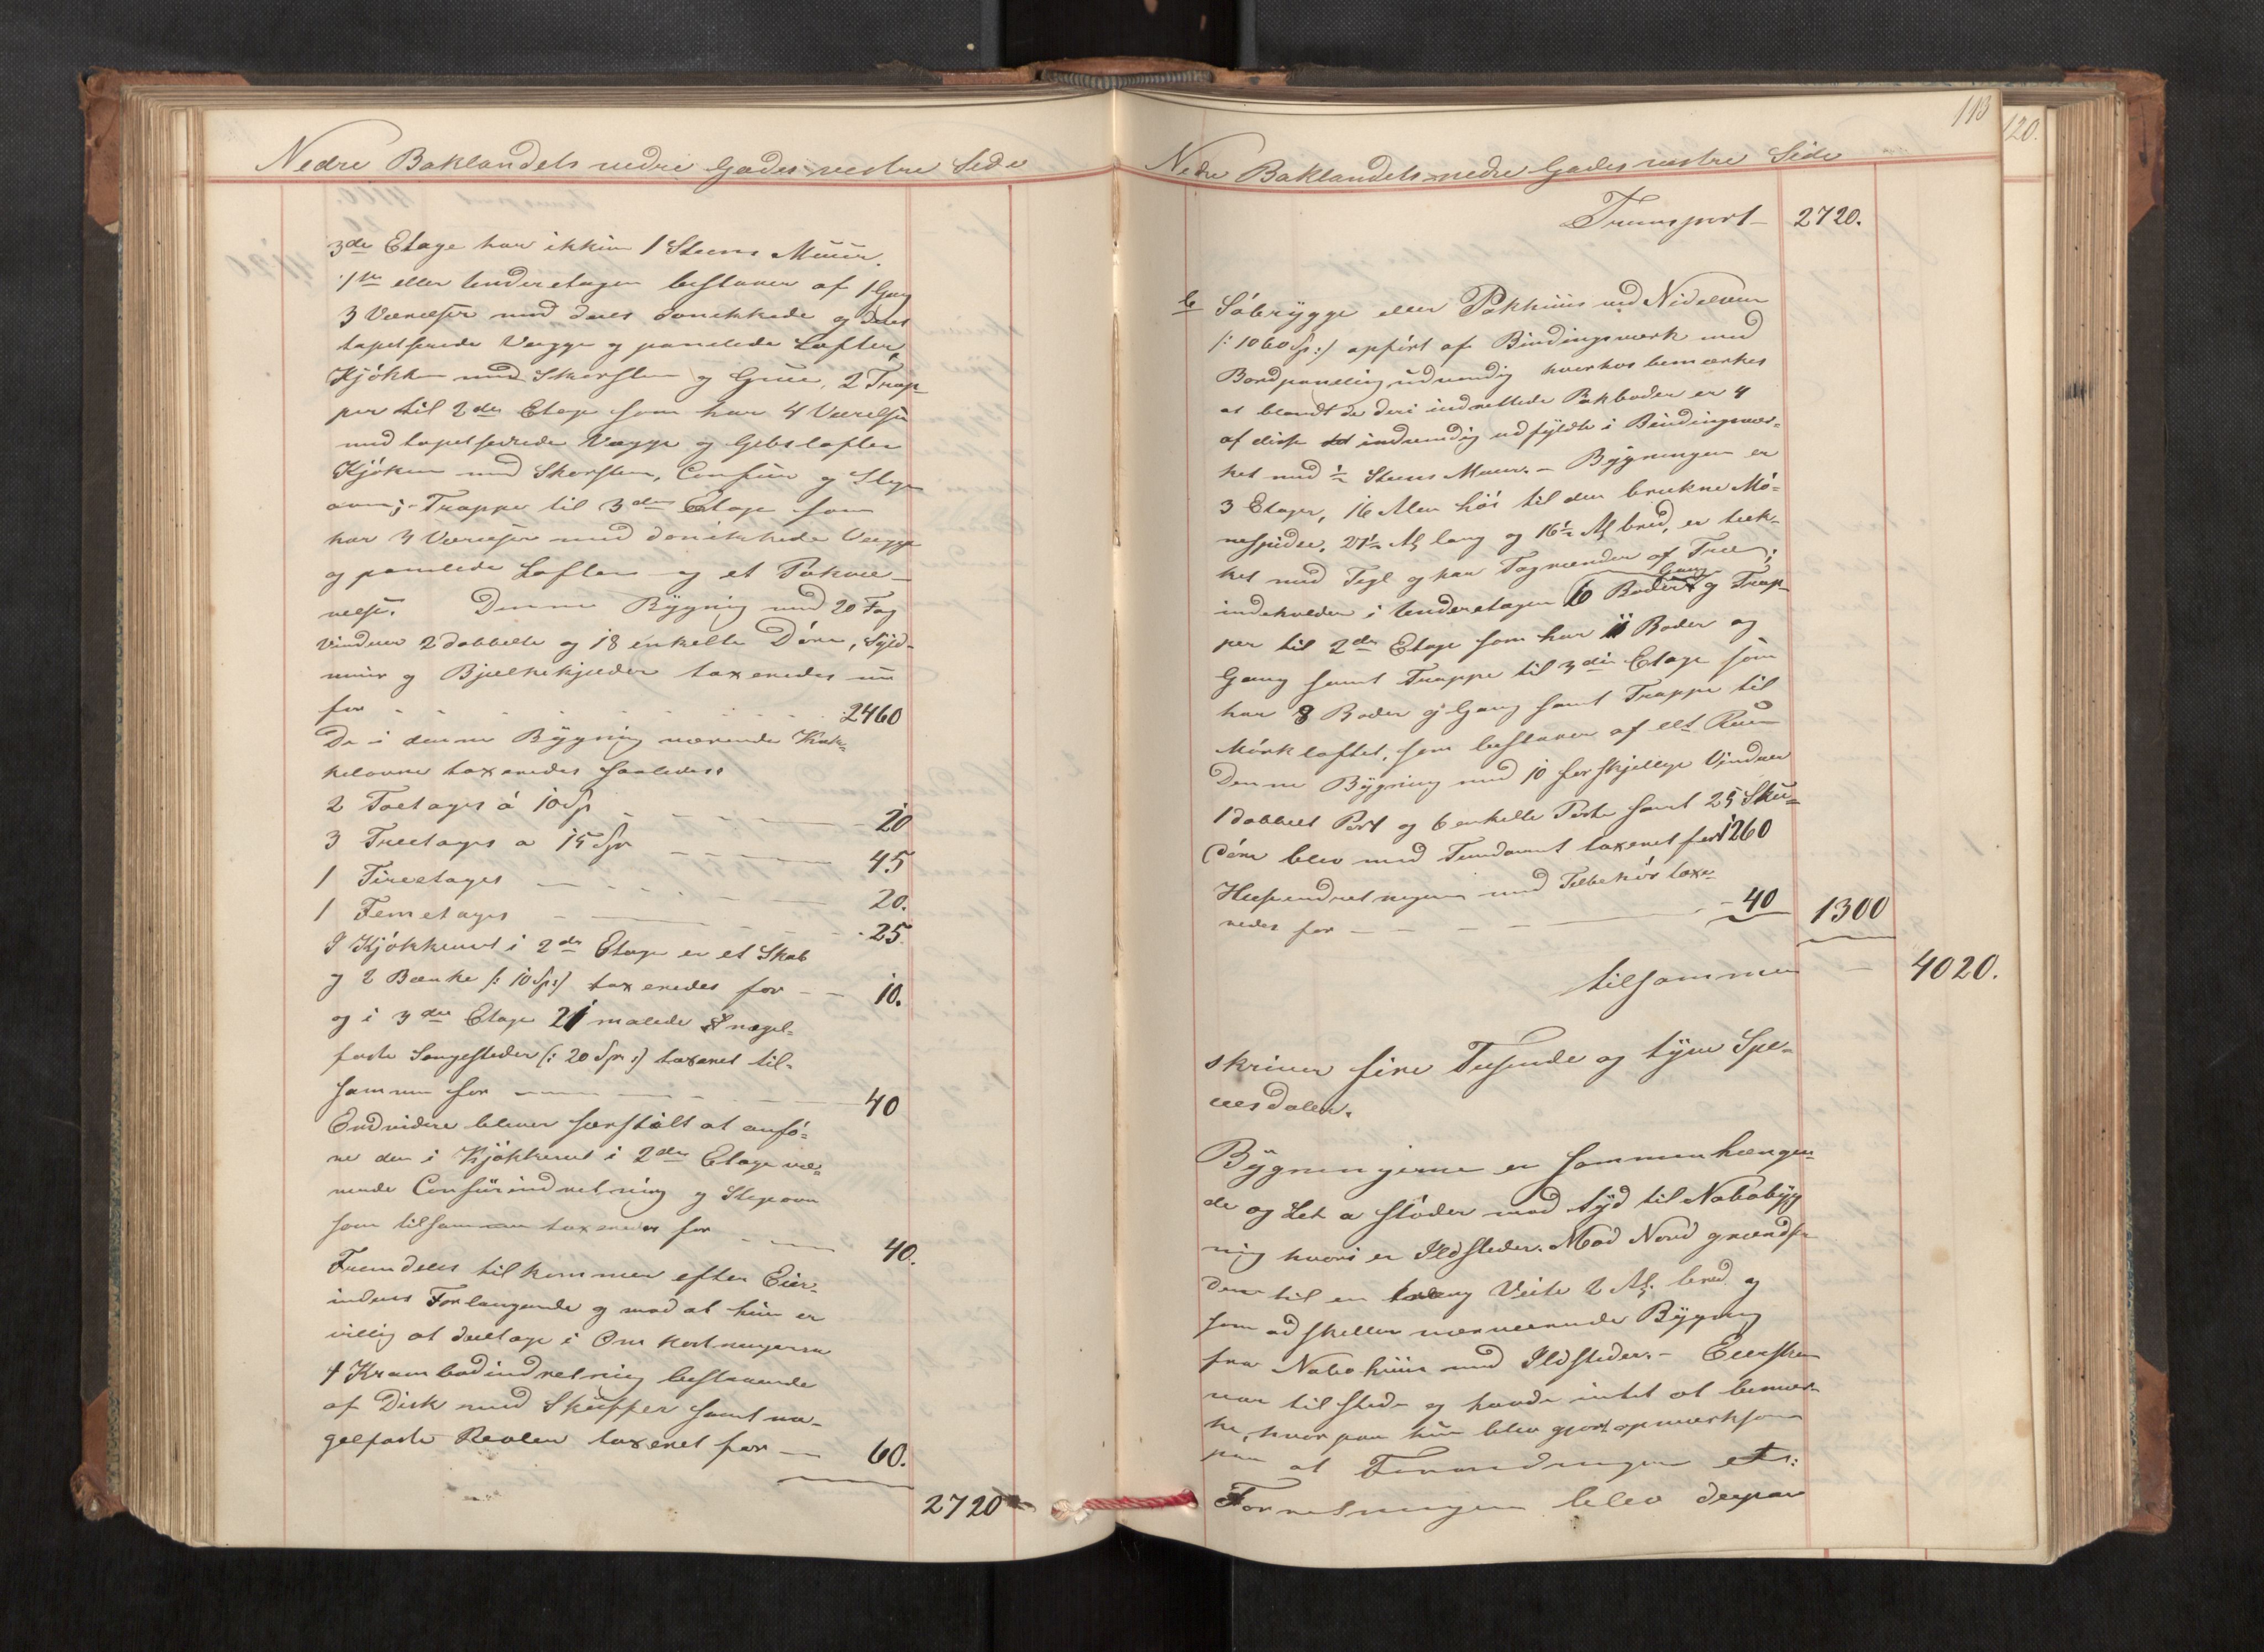 Nedre Baklandets nedre Gades vestre Side
3de Etage har ikkun 1 Steens Muur.
1ste eller Underetagen bestaaer af 1 Gang
3 Værelser med deels donikkede og deels
tapetserede Vægge og panelede Lofter,
Kjökken med Skorsten og Grue, 2 Trap-
per til 2den Etage som har 4 Værelser
med tapetserede Vægge og Gibslofter
Kjöken med Skorsten, Comfur og Stege
ovn; - Trappe til 3die Etage som
har 4 Værelser med donikkede Vægge
og panelede Lofter og et Takvæ-
relse. Denne Bÿgning med 20 Fag
Vinduer 2 dobbelte og 18 enkelte Döre, Sÿld-
muur og Bjelkekjelder taxeredes nu
for - - - - - 2460
De i denne Bÿgning værende Kak-
kelovne taxeredes saaledes:
2 Toetages á 10 Sp - - - 20
3 Treetages a 15 Spr - - - 45
1 Fireetages - - - 20.
1 Femetages - - - 25.
I Kjökkenet i 2den Etage er et Skab
og 2 Bænke /: 10 Sp :/ taxeredes for - - 10.
og i 3die Etage 21 malede nagel-
faste Sengesteder /: 20 Spr :/ taxeret til-
sammen for - - - 40
Endvidere bliver særskilt at anfö-
re den i Kjökkenet i 2den Etage væ-
rende Comfürindretning og Stegeovn
som tilsammen taxeredes for - - - 40.
Fremdeles tilkommer efter Eier-
indens Forlangende og mod at hun er
villig at deeltage i Omkostningerne
1 Krambodindretning bestaaende
af Disk med Skuffer samt na-
gelfaste Reoler taxeret for - 60.
2720
113
120.
Nedre Baklandets nedre Gades vestre Side
Transport - 2720.
b Söbrÿgge eller Pakhuus ved Nidelven
/: 1060 Sp :/ opfört af Bindingsværk med
Bordpaneling udvendig hvorhos bemærkes
at blandt de deri indrettede Pakboder er 4
af disse indvendig udfÿldte i Bindingsvær-
ket med ½ Steens Muur. - Bÿgningen er
3 Etager, 16 Alen höi til den brukne Mö-
nespidse, 27½ Al lang og 16½ Al bred, er tæk-
ket med Tegl og har Tagrender af Træ;
indeholder i Underetagen 10 Boder Gang og Trap-
per til 2den Etage som har 11 Boder og
Gang samt Trappe til 3die Etage som
har 8 Boder og Gang samt Trappe til
Mörkloftet, som bestaaer af ett Rum
Denne Bÿgning med 10 forskjellige Vinduer
1 dobbelt Port og 6 enkelte Porte samt 25 Sku-
döre blev med Fundament taxeret for 1260
Heiseindretningen med Tilbehör taxe-
redes for - - - - 40 1300
tilsammen - 4020.
skriver fire Tusende og tÿve Spe-
ciesdaler.
Bÿgningerne er sammenhængen-
de og Let a stöder mod Sÿd til Nabobÿg
ning hvori er Ildsteder. Mod Nord grænd-
ser til en trang Veite 2 Al. bred og
som adskiller nærværende Bÿgning
fra Nabohuus med Ildsteder. - Eiersken
var tilstede og havde intet at bemær-
ke, hvorpaa hun blev gjort opmærksom
paa at Forandringer etc:
Forretningen blev derpaa